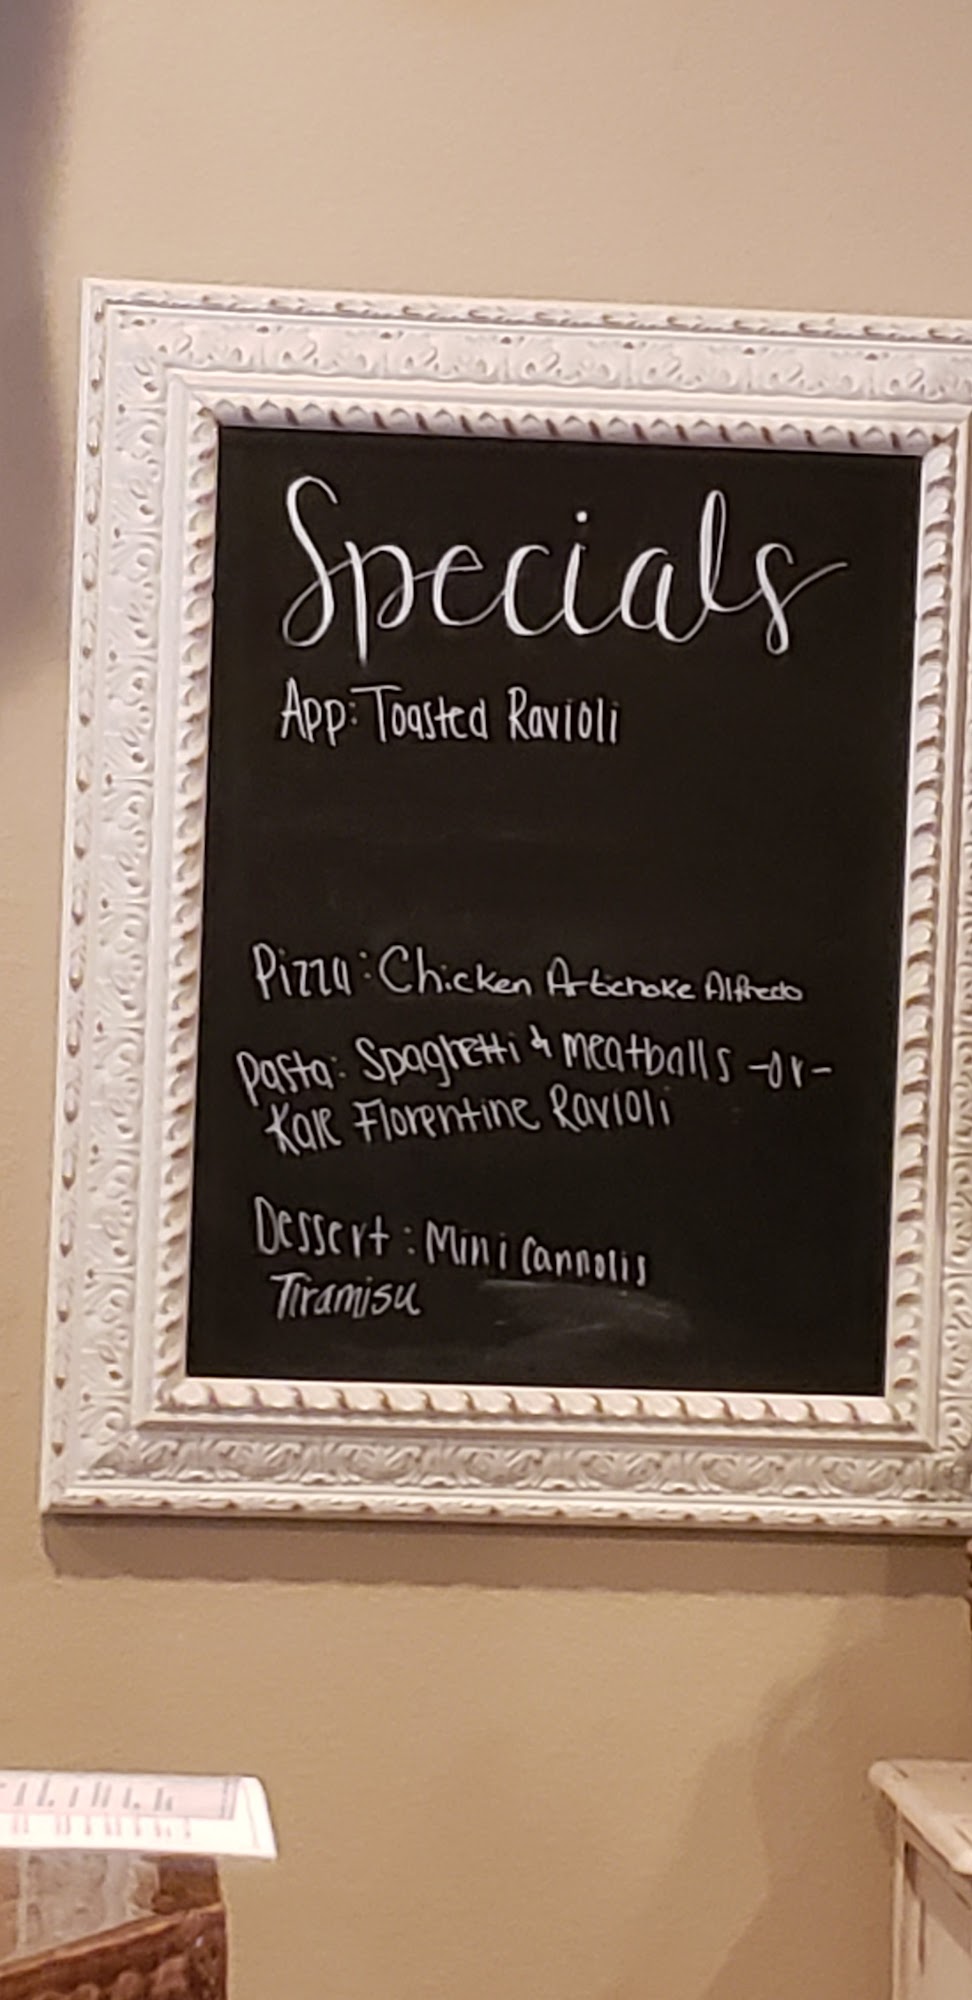 Specials
App: Toasted Ravioli
Pizza: Chicken Artichoke Alfredo
Pasta: Spaghetti & meatballs -or-
Kale Florentine Ravioli
Dessert: Mini Cannolis
Tiramisu